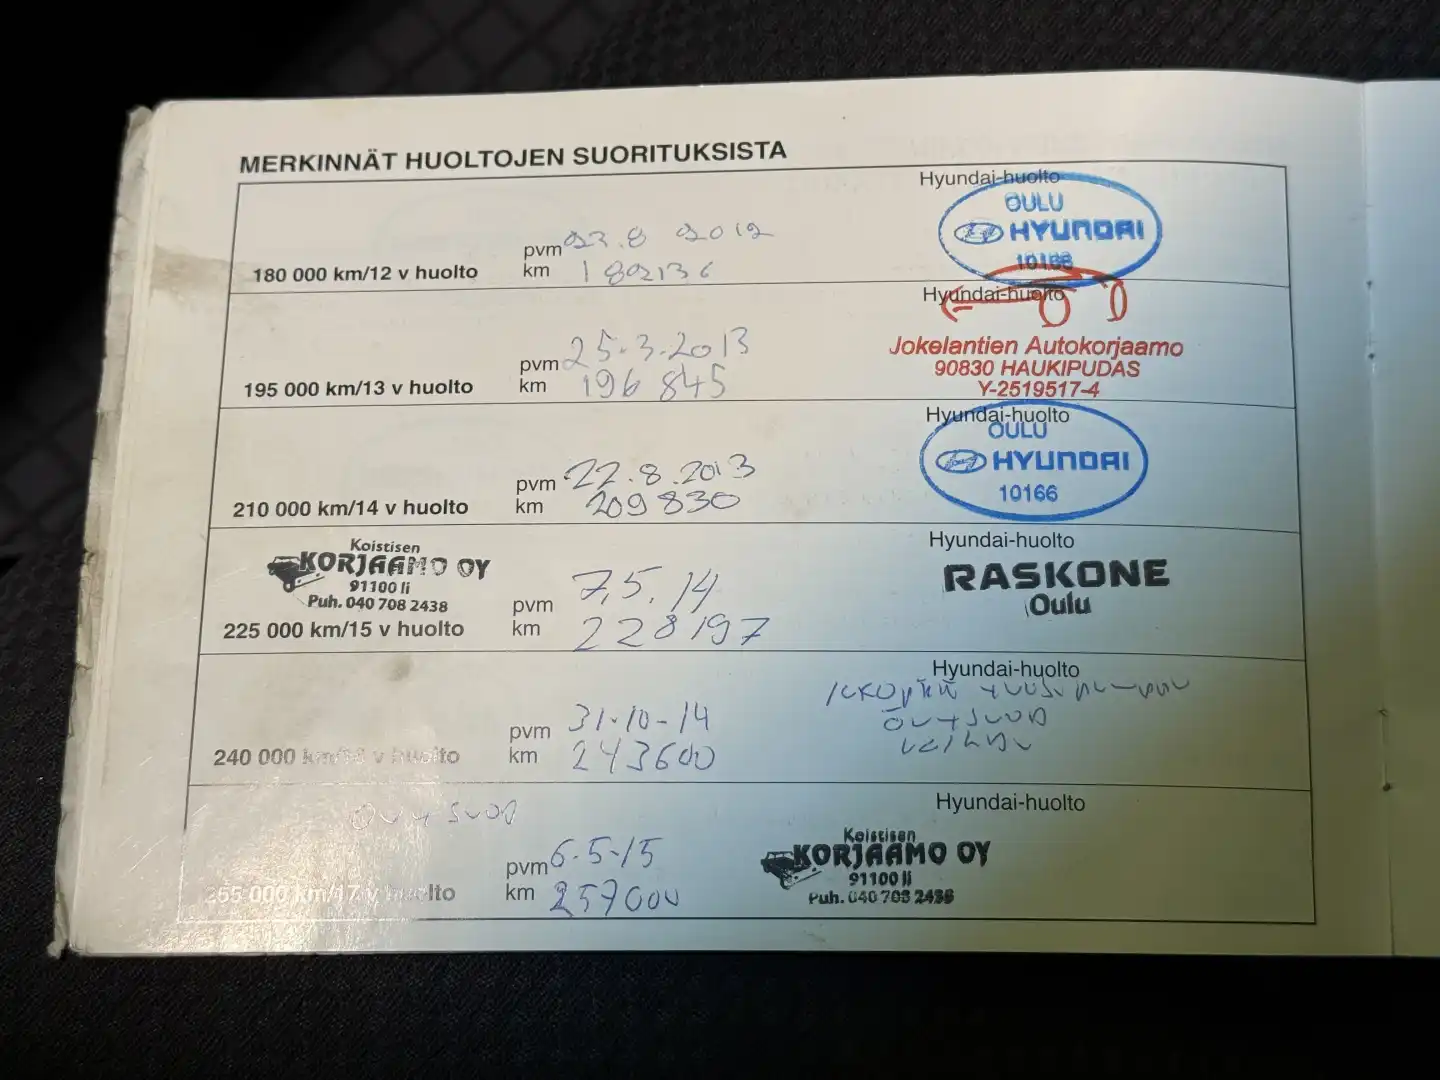 MERKINNÄT HUOLTOJEN SUORITUKSISTA
Hyundai-huolto
OULU
HYUNDAI
10166
pvm 23.8 2012
180 000 km/12 v huolto
km 182136
Hyundai-huolto
Jokelantien Autokorjaamo
90830 HAUKIPUDAS
Y-2519517-4
pvm 25.3.2013
195 000 km/13 v huolto
km 196 845
Hyundai-huolto
OULU
HYUNDAI
10166
pvm 22.8.2013
210 000 km/14 v huolto
km 209 830
Hyundai-huolto
Koistisen
KORJAAMO OY
91100 Ii
Puh. 040 708 2438
RASKONE
Oulu
pvm 7.5.14
225 000 km/15 v huolto
km 228197
Hyundai-huolto
pvm 31-10-14
240 000 km/16 v huolto
km 243600
Hyundai-huolto
pvm 6.5-15
255 000 km/17 v huolto
km 257000
Koistisen
KORJAAMO OY
91100 Ii
Puh. 040 708 2438